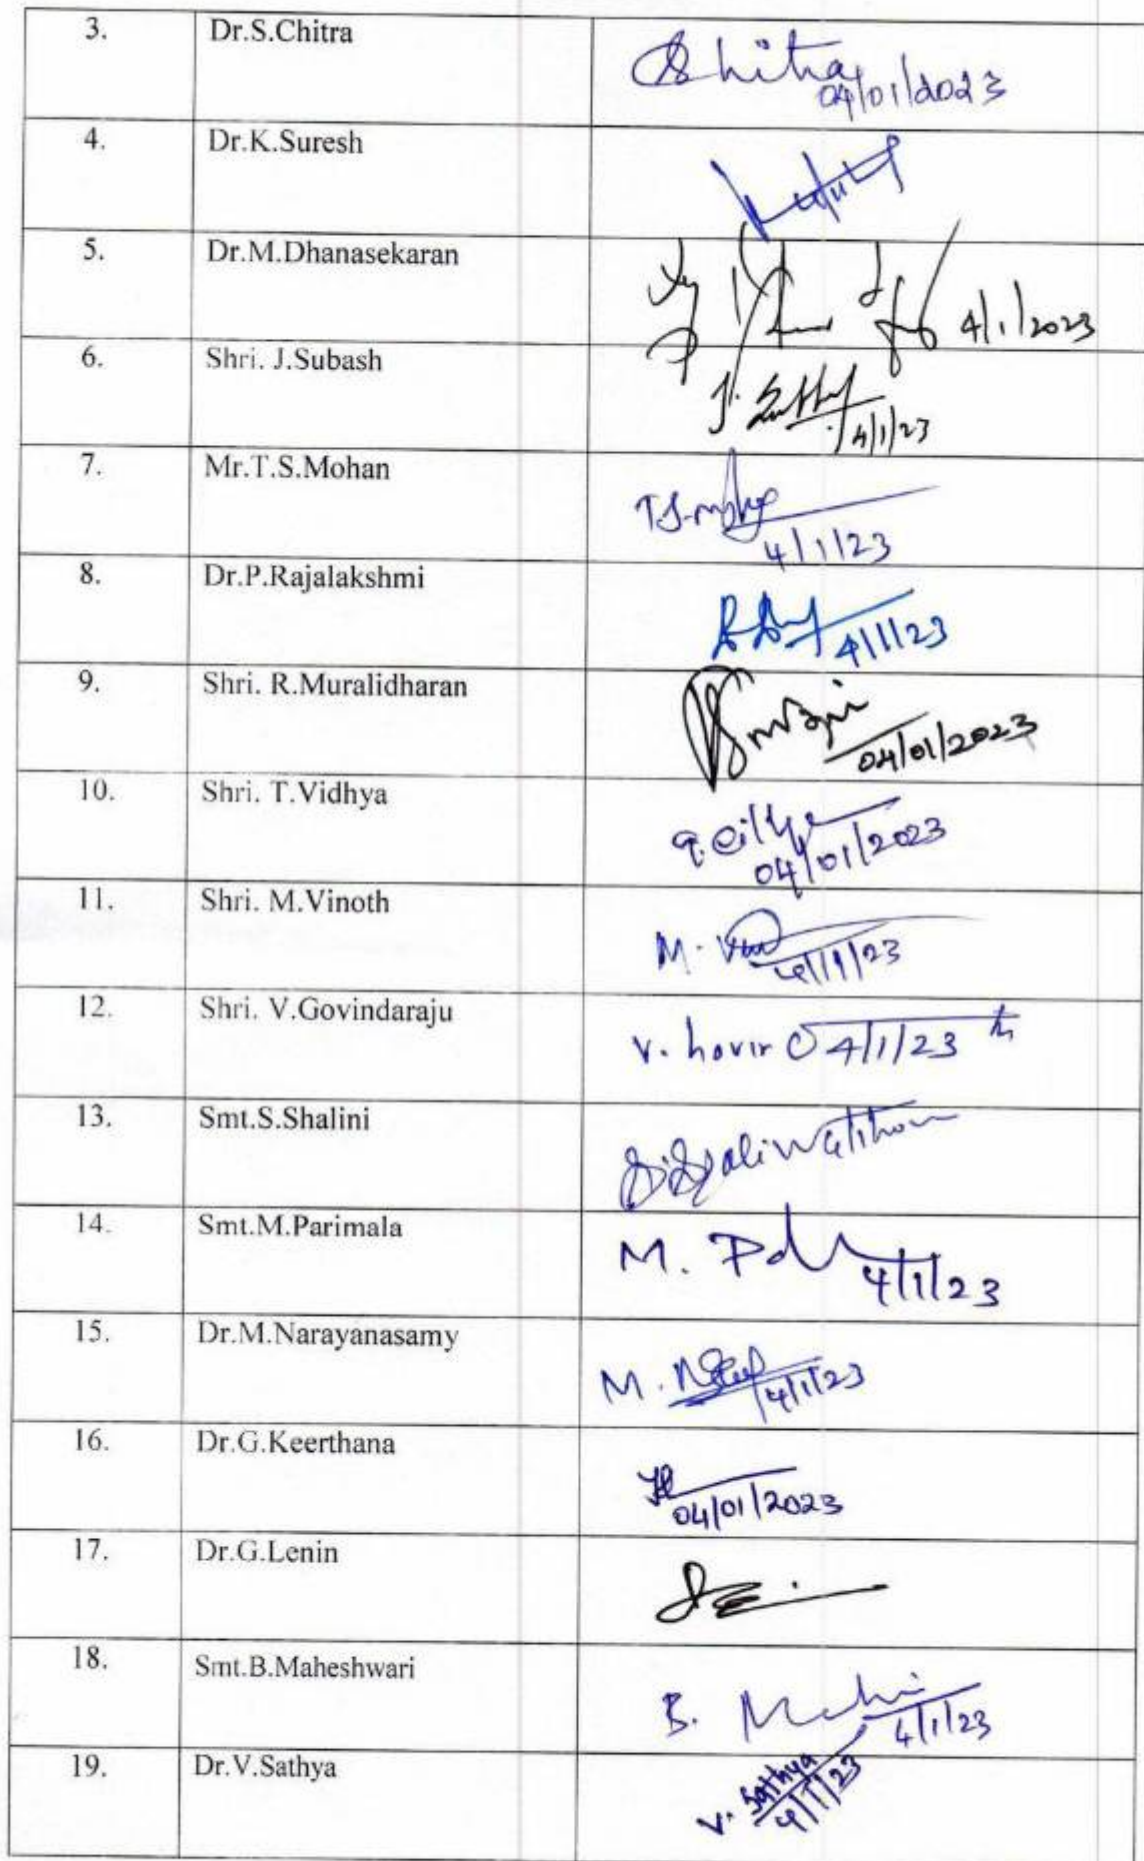 3. Dr.S.Chitra
Chitra
04/01/2023
4. Dr.K.Suresh
5. Dr.M.Dhanasekaran
4/1/2023
6. Shri. J.Subash
J.
4/1/23
7. Mr.T.S.Mohan
T.S.
4/1/23
8. Dr.P.Rajalakshmi
4/1/23
9. Shri. R.Muralidharan
04/01/2023
10. Shri. T.Vidhya
04/01/2023
11. Shri. M.Vinoth
M.
4/1/23
12. Shri. V.Govindaraju
V.
4/1/23
13. Smt.S.Shalini
14. Smt.M.Parimala
M.
4/1/23
15. Dr.M.Narayanasamy
M.
4/1/23
16. Dr.G.Keerthana
04/01/2023
17. Dr.G.Lenin
18. Smt.B.Maheshwari
B.
4/1/23
19. Dr.V.Sathya
V. Sathya
4/1/23